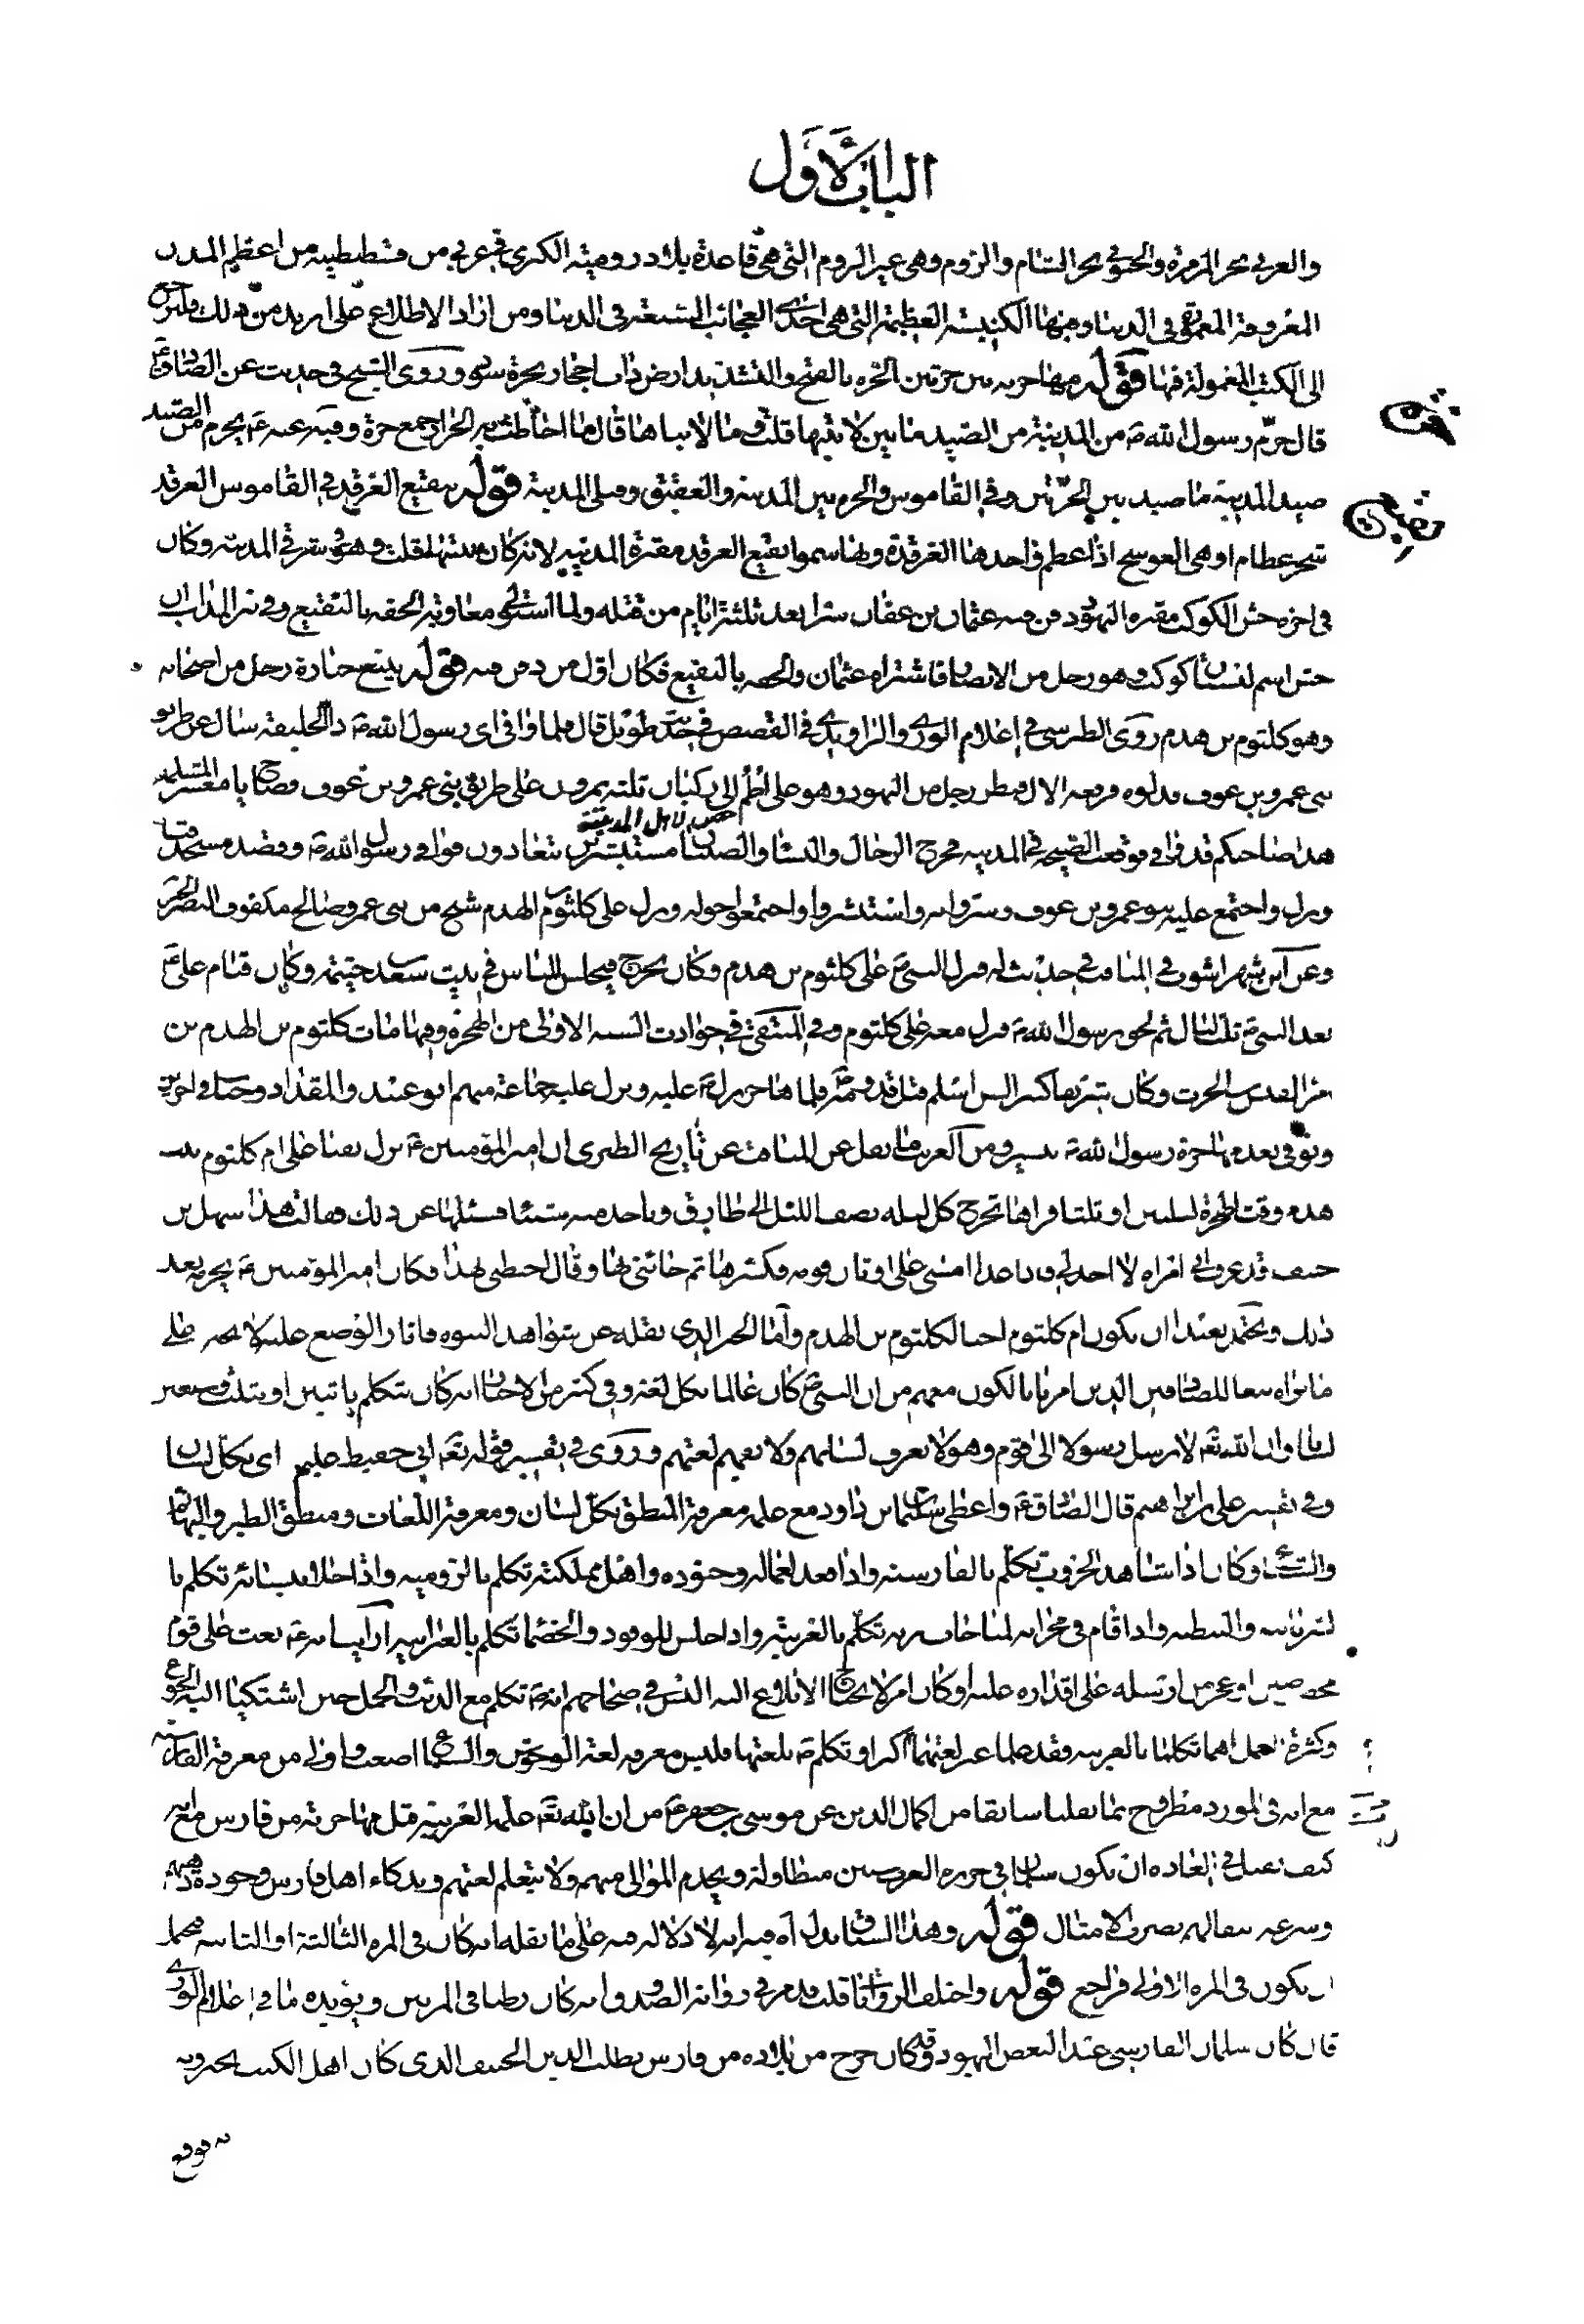 الباب الاول
والغربي بحر المرمرة والجنوبي بحر الشام والروم وهي غير الروم التي هي قاعدة بلاد رومية الكبرى في غربي من قسطنطينية من اعظم المدن
المعروفة المعمورة في الدنيا ومنها الكنيسة العظيمة التي هي احدى العجائب السبعة في الدنيا ومن اراد الاطلاع على ازيد من ذلك فليرجع
الى الكتب المعمولة فيها قوله مهاجره بين حرتين الحرة بالفتح والتشديد ارض ذات احجار نخرة سود وروى الشيخ في حديث عن الصادق ع
قال حرم رسول الله ص من المدينة من الصيد ما بين لابتيها قلت وما لابتاها قال ما احاطت به الحرار جمع حرة وفيه عنه ع يحرم من الصيد
صيد المدينة ما صيد بين الحرتين وفي القاموس والحرم بين المدينة والعقيق وقبلي المدينة قوله ببقيع الغرقد في القاموس الغرقد
شجر عظام او هي العوسج اذا عظم واحدها الغرقدة وبها سموا بقيع الغرقد مقبرة المدينة لانه كان منبتها قلت وهو في شرقي المدينة وكان
في اخره حش الكوكب مقبرة اليهود دفن فيه عثمان بن عفان سرا بعد ثلثة ايام من قتله ولما استولى معاوية الحقه بالبقيع
حش اسم لبستان كوكب وهو رجل من الانصار فاشتراه عثمان والحقه بالبقيع فكان اول من دفن فيه قوله يتبع جنازة رجل من اصحابه
وهو كلثوم بن هدم روى الطبرسي في اعلام الورى والراوندي في القصص في حديث طويل قال فلما وافى اي رسول الله ص ذا الحليفة سال عن طريق
بني عمرو بن عوف فدلوه فرفعه الآل فنظر رجل من اليهود وهو على اطم الى ركبان ثلثة يمرون على طريق بني عمرو بن عوف فصاح يا معشر المسلمة
حصن لاهل المدينة
هذا صاحبكم قد وافى فوقعت الصيحة في المدينة فخرج الرجال والنساء والصبيان مستبشرين يتعادون فوافى رسول الله ص وقصد مسجد قبا
ونزل واجتمع عليه بنو عمرو بن عوف وسروا به واستبشروا واجتمعوا حوله ونزل على كلثوم بن الهدم شيخ من بني عمرو صالح مكفوف البصر الخبر
وعن ابن شهراشوب في المناقب في حديث له فنزل النبي ص على كلثوم بن هدم وكان يخرج فيجلس للناس في بيت سعد بن خيثمة وكان قيام علي ع
بعد النبي ص ثلث ليال ثم لحق برسول الله ص فنزل معه على كلثوم وفي المنتقى في حوادث السنة الاولى من الهجرة وفيها مات كلثوم بن الهدم بن
وتوفي بعد مهاجرة رسول الله ص بيسير ومن الغريب ما نقل عن المناقب عن تاريخ الطبري ان امير المؤمنين ع نزل بقبا على ام كلثوم بنت
هدم وقت الهجرة ليلتين او ثلثا فراها تخرج كل ليلة نصف الليل الى طارق وياخذ منه شيئا فسئلها عن ذلك فقالت هذا سهل بن
حنيف قد عرف اني امراة لا احد لي فاذا امسى على اوثان قومه فكسرها ثم جائني بها وقال احتطبي بهذا فكان امير المؤمنين ع يحرمه بعد
ذلك ويحتمل بعيدا ان يكون ام كلثوم اختا لكلثوم بن الهدم واما الخبر الذي نقله عن شواهد النبوة فاثار الوضع عليه لائحة على
ما نراه تبعا للصادقين الذين امرنا بالكون معهم من ان النبي ص كان عالما بكل لغة وفي كثير من الاخبار انه كان يتكلم باثنين او بثلث وسبعين
لسانا وان الله تعالى لا يرسل رسولا الى قوم وهو لا يعرف لسانهم ولا يفهم لغتهم وروى في تفسير قوله تعالى اني حفيظ عليم اي بكل لسان
وفي تفسير علي بن ابراهيم قال الصادق ع واعطي سليمان بن داود مع علمه معرفة المنطق بكل لسان ومعرفة اللغات ومنطق الطير والبهائم
والسباع وكان اذا شاهد الحروب تكلم بالفارسية واذا قعد لعماله وجنوده واهل مملكته تكلم بالرومية واذا خلا بنسائه تكلم با
لسريانية والنبطية واذا قام في محرابه لمناجات ربه تكلم بالعربية واذا جلس للوفود والخصماء تكلم بالعبرانية
وكثرة العمل اهما تكلما بالعربية فقد علما غير لغتهما او تكلم ص بلغتهما فليس معرفة لغة الوحوش والسباع اصعب واولى من معرفة الفارسية
مع انه في المورد مطروح بما نقلنا سابقا من اكمال الدين عن موسى بن جعفر ع من ان الله تعالى علمه العربية قبل مهاجرته من فارس مع انه
وسرعة انتقالهم يضرب الامثال قوله وهذا السياق يدل اه فيه انه لا دلالة فيه على ما نقله انه كان في المرة الثالثة او الثانية فيحتمل
ان يكون في المرة الاولى فراجع قوله واختلف الروايات قلت قد مر في رواية الصدوق انه كان رطبا في المرتين ويؤيده ما في اعلام الورى
قال كان سلمان الفارسي عبدا لبعض اليهود وقد كان خرج من بلاده من فارس يطلب الدين الحنيف الذي كان اهل الكتب يخبرونه